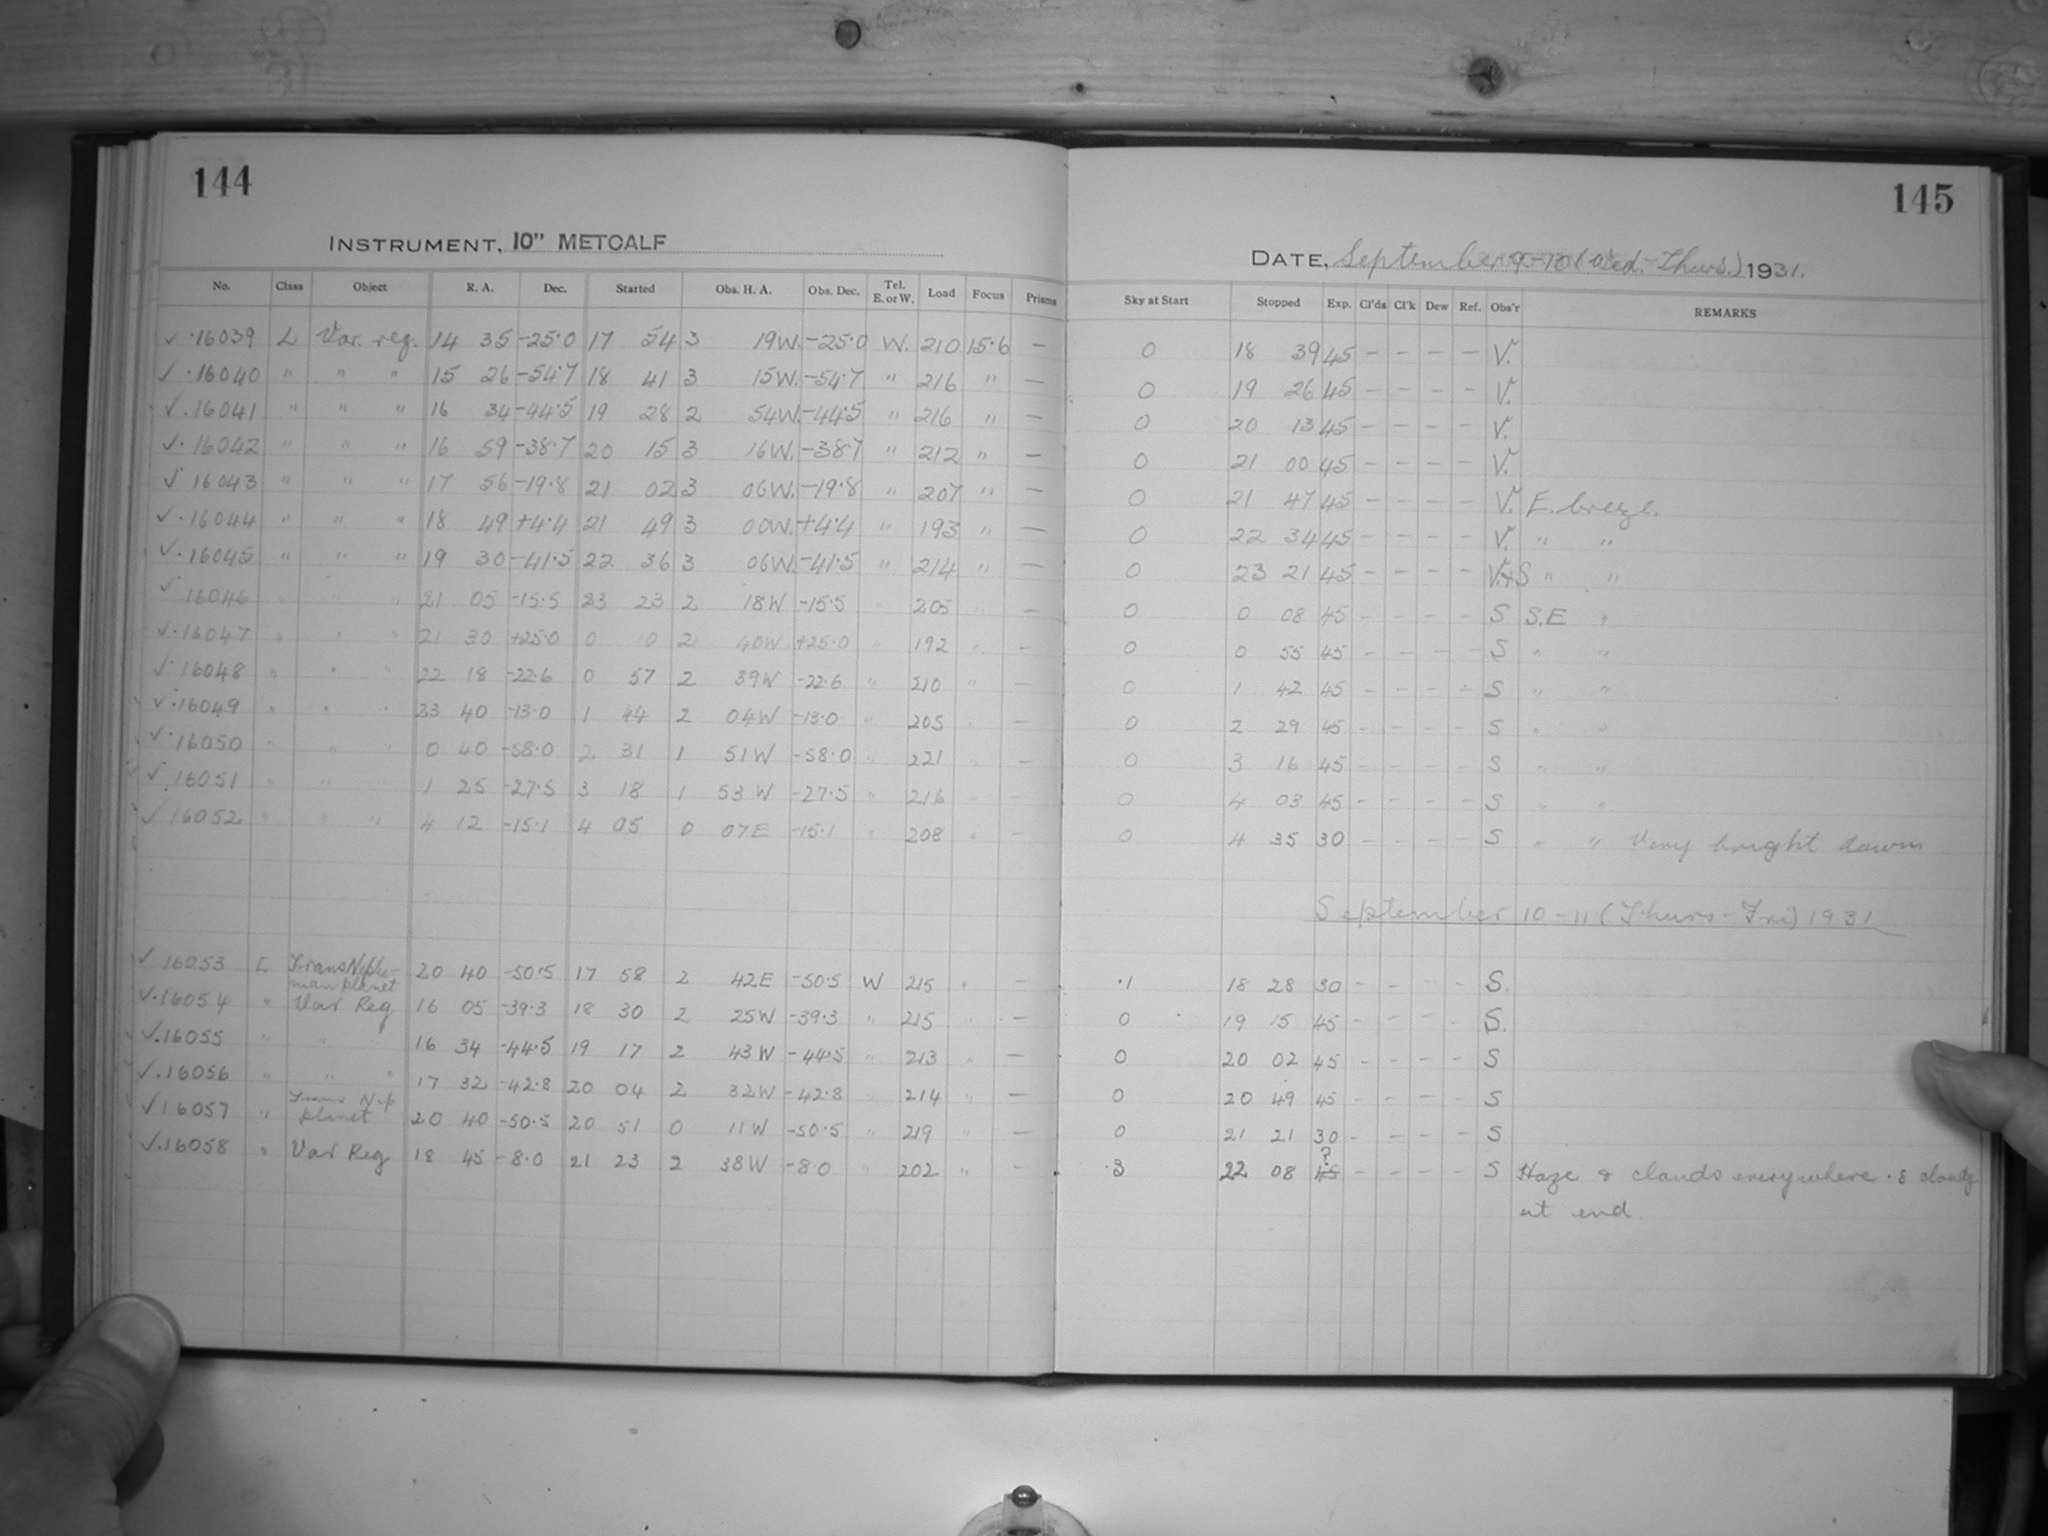 144
145
INSTRUMENT, 10" METCALF
DATE, September 9-10 (Wed.-Thurs.) 1931.
No. Class Object R. A. Dec. Started Obs. H. A. Obs. Dec. Tel. E. or W. Load Focus Prisms Sky at Start Stopped Exp. Cl'ds Cl'k Dew Ref. Obs'r REMARKS
✓ ·16039 L Var. reg. 14 35 -25·0 17 54 3 19W. -25·0 W. 210 15·6 — 0 18 39 45 - - - - V.
✓ ·16040 " " " 15 26 -54·7 18 41 3 15W. -54·7 " 216 " — 0 19 26 45 - - - - V.
✓ ·16041 " " " 16 34 -44·5 19 28 2 54W. -44·5 " 216 " — 0 20 13 45 - - - - V.
✓ ·16042 " " " 16 59 -38·7 20 15 3 16W. -38·7 " 212 " — 0 21 00 45 - - - - V.
✓ 16043 " " " 17 56 -19·8 21 02 3 06W. -19·8 " 207 " — 0 21 47 45 - - - - V. E. breeze.
✓ ·16044 " " " 18 49 +4·4 21 49 3 00W. +4·4 " 193 " — 0 22 34 45 - - - - V. " "
✓ ·16045 " " " 19 30 -41·5 22 36 3 06W. -41·5 " 214 " — 0 23 21 45 - - - - V.+S " "
✓ 16046 " " " 21 05 -15·5 23 23 2 18W -15·5 " 205 " — 0 0 08 45 - - - - S S.E "
✓ ·16047 " " " 21 30 +25·0 0 10 2 40W +25·0 " 192 " — 0 0 55 45 - - - - S " "
✓ ·16048 " " " 22 18 -22·6 0 57 2 39W -22·6 " 210 " — 0 1 42 45 - - - - S " "
✓ ·16049 " " " 23 40 -13·0 1 44 2 04W -13·0 " 205 " — 0 2 29 45 - - - - S " "
✓ ·16050 " " " 0 40 -58·0 2 31 1 51W -58·0 " 221 " — 0 3 16 45 - - - - S " "
✓ 16051 " " " 1 25 -27·5 3 18 1 53W -27·5 " 216 " — 0 4 03 45 - - - - S " "
✓ 16052 " " " 4 12 -15·1 4 05 0 07E -15·1 " 208 " — 0 4 35 30 - - - - S " " Very bright dawn
September 10-11 (Thurs-Fri) 1931
✓ 16053 L Trans Neptu-
nian planet 20 40 -50·5 17 58 2 42E -50·5 W 215 " — ·1 18 28 30 - - - - S.
✓ ·16054 " Var Reg 16 05 -39·3 18 30 2 25W -39·3 " 215 " — 0 19 15 45 - - - - S.
✓ ·16055 " " " 16 34 -44·5 19 17 2 43W -44·5 " 213 " — 0 20 02 45 - - - - S
✓ ·16056 " " " 17 32 -42·8 20 04 2 32W -42·8 " 214 " — 0 20 49 45 - - - - S
✓ 16057 " Trans Nep
planet 20 40 -50·5 20 51 0 11W -50·5 " 219 " — 0 21 21 30 - - - - S
✓ ·16058 " Var Reg 18 45 -8·0 21 23 2 38W -8·0 " 202 " — ·3 22 08 45 ? - - - - S Haze & clouds everywhere ·8 cloudy
at end